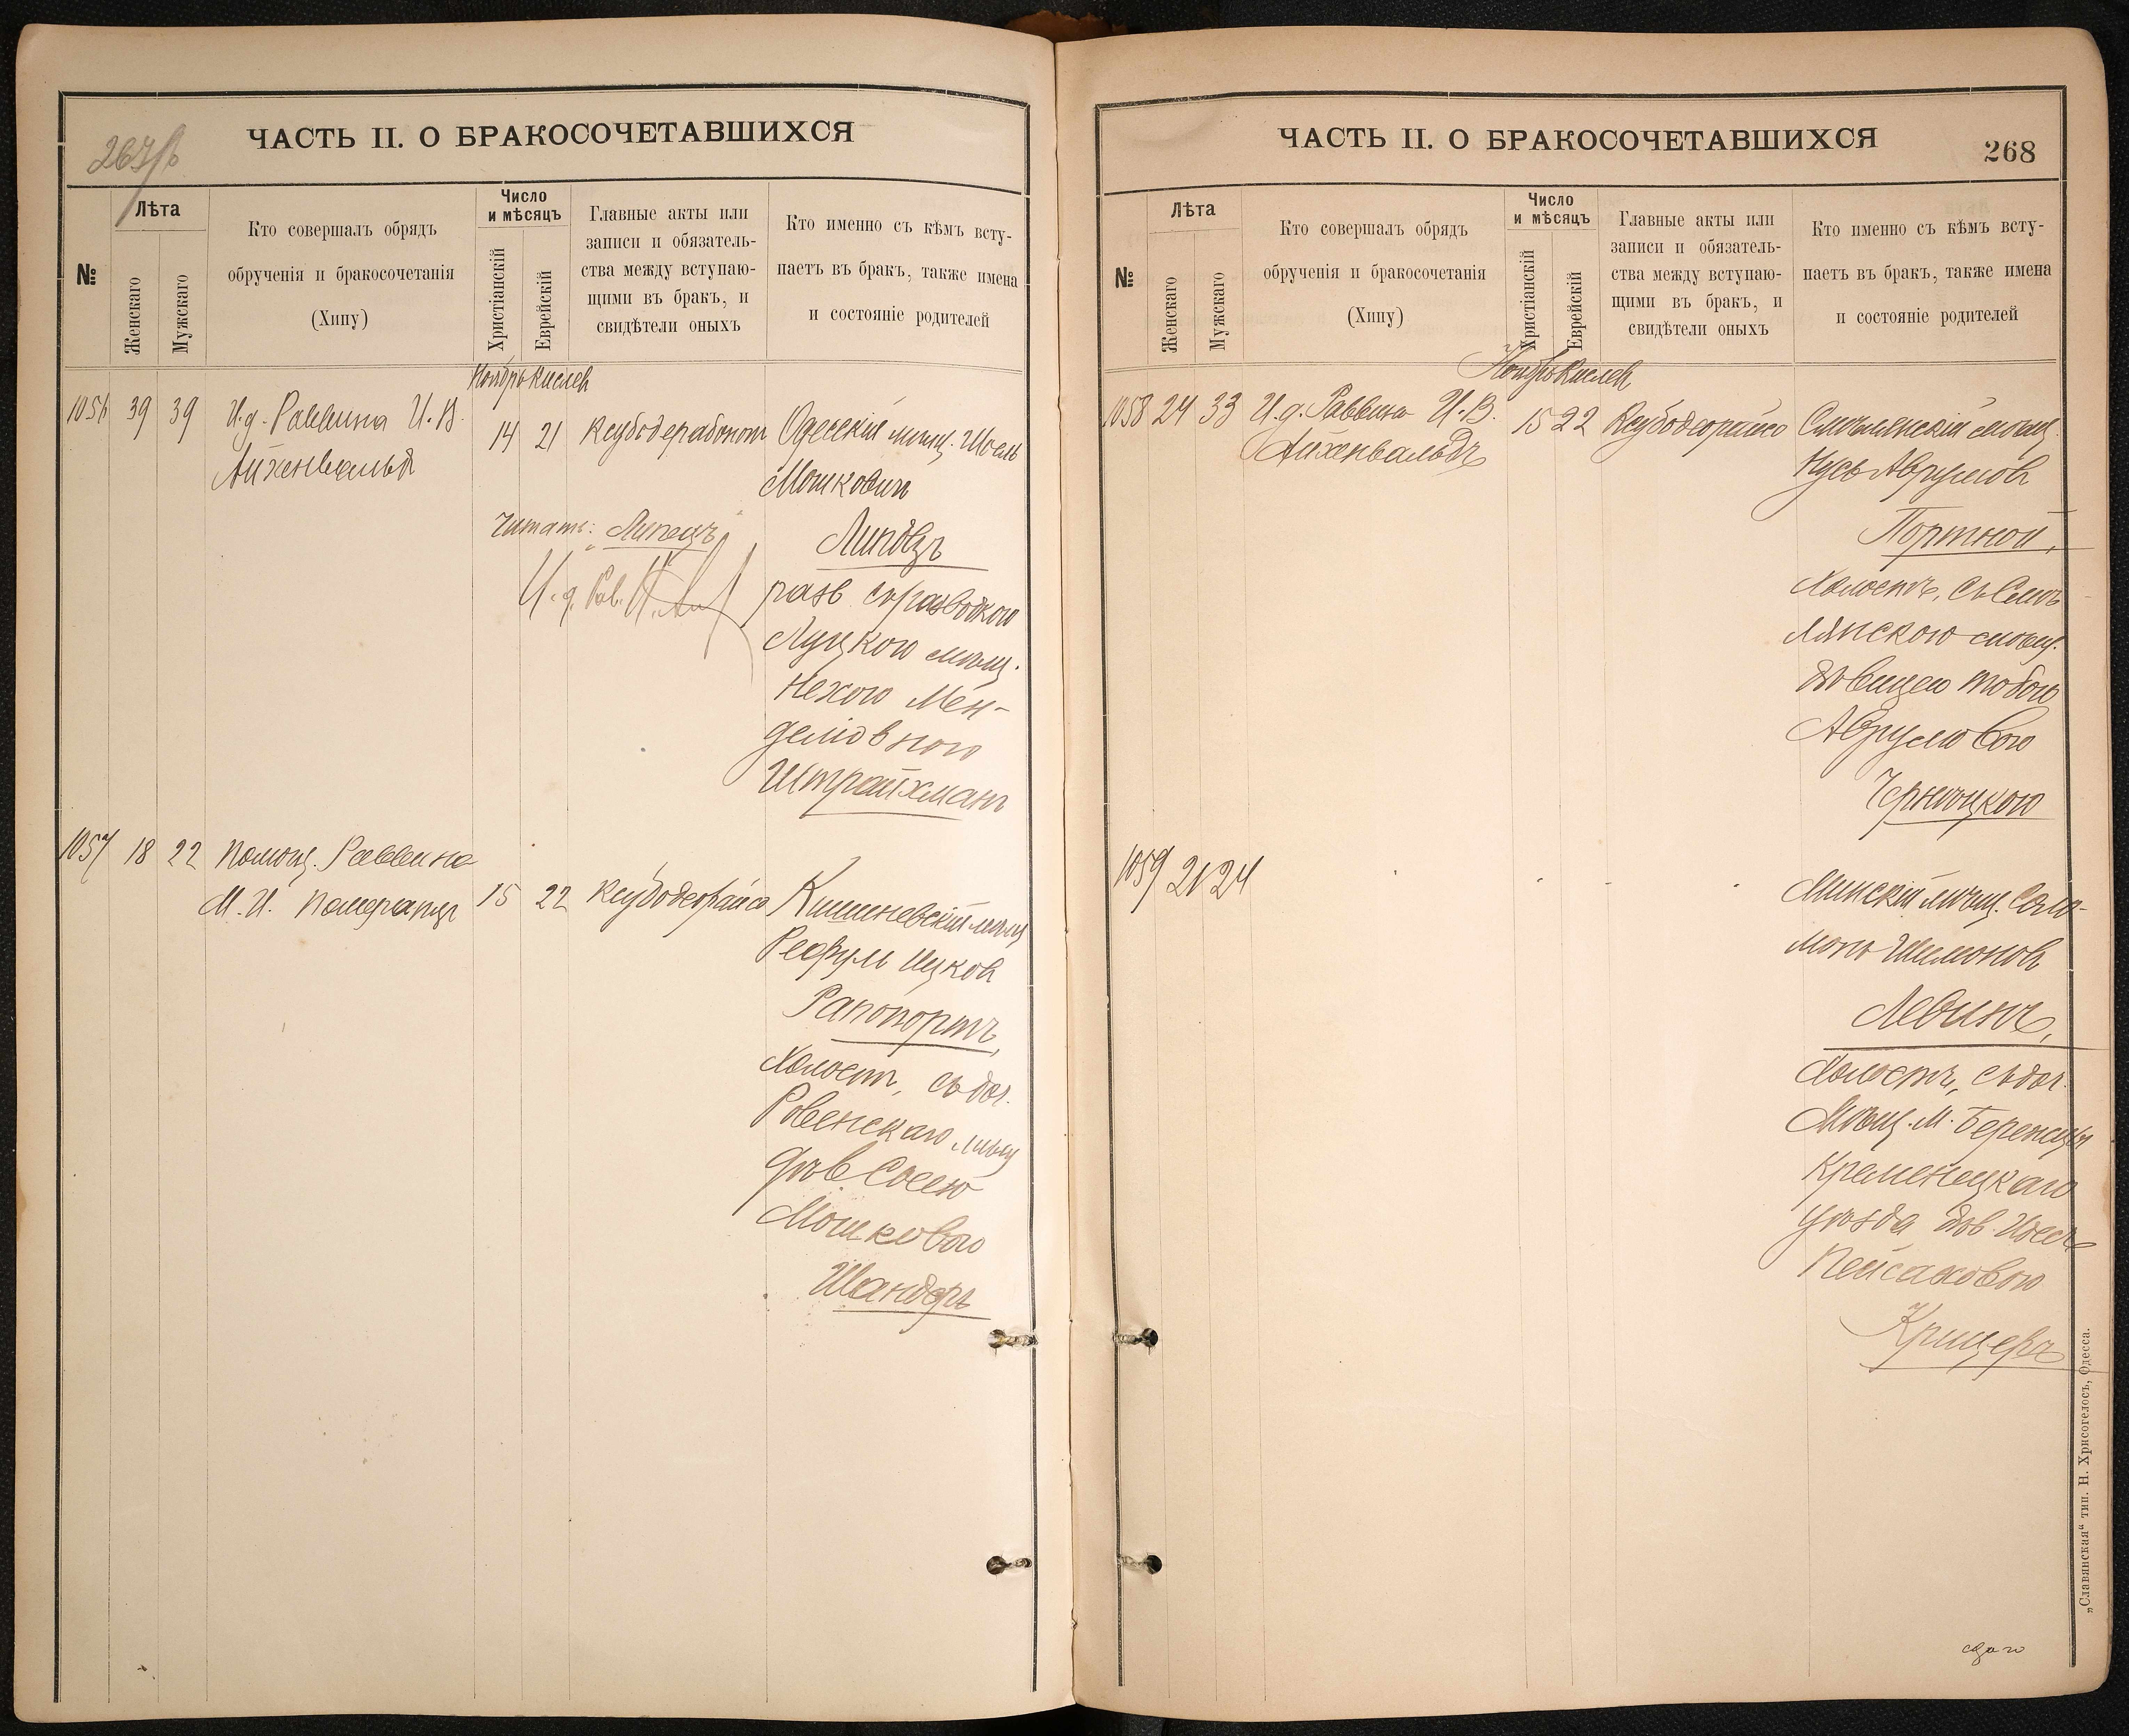 267/б
ЧАСТЬ II. О БРАКОСОЧЕТАВШИХСЯ
№
Лѣта
Женскаго
Мужскаго
Кто совершалъ обрядъ
обрученія и бракосочетанія
(Хипу)
Число
и мѣсяцъ
Христіанскій
Еврейскій
Главные акты или
записи и обязатель-
ства между вступаю-
щими въ бракъ, и
свидѣтели оныхъ
Кто именно съ кѣмъ всту-
паетъ въ бракъ, также имена
и состояніе родителей
Ноябрь Кислев
1056 39 39 И.д. Раввина И.В.
Айхенвальд
14 21
Одесскій мѣщ.
Мошкович
Читать: Липецъ
И.д. Рав.
разв. съ разводкою
Луцкою мѣщ.
Нехою Мен-
деліовною
Штрайхман
1057 18 22 Помощ. Раввина
М.И. Померанц
15 22 Ксубодеорайсо
Кишиневскій мѣщ
Рефуль Ицков
Рапопортъ,
Холост, съ доч.
Ровенскаго мѣщ
дѣв Сосею
Мошковою
Шандеръ
ЧАСТЬ II. О БРАКОСОЧЕТАВШИХСЯ
268
№
Лѣта
Женскаго
Мужскаго
Кто совершалъ обрядъ
обрученія и бракосочетанія
(Хипу)
Число
и мѣсяцъ
Христіанскій
Еврейскій
Главные акты или
записи и обязатель-
ства между вступаю-
щими въ бракъ, и
свидѣтели оныхъ
Кто именно съ кѣмъ всту-
паетъ въ бракъ, также имена
и состояніе родителей
Ноябрь Кислев
1058 24 33 И.д. Раввина И.В.
Айхенвальдъ
15 22 Ксубодеорайсо
Смѣлянскій мѣщ.
Нусь Аврумов
Портной,
Холостъ, съ Смѣ
лянскою мѣщ.
дѣвицею Тобою
Аврумовою
Чернѣцкою
1059 21 24
Минскій мѣщ. Соло-
монъ Шимонов
Левинъ,
Холостъ, съ доч.
Мѣщ. М. Бережцы
Кременецкаго
уѣзда дѣв.
Пейсаховою
Крицеръ
„Славянская“ тип. Н. Хрисогелосъ, Одесса.